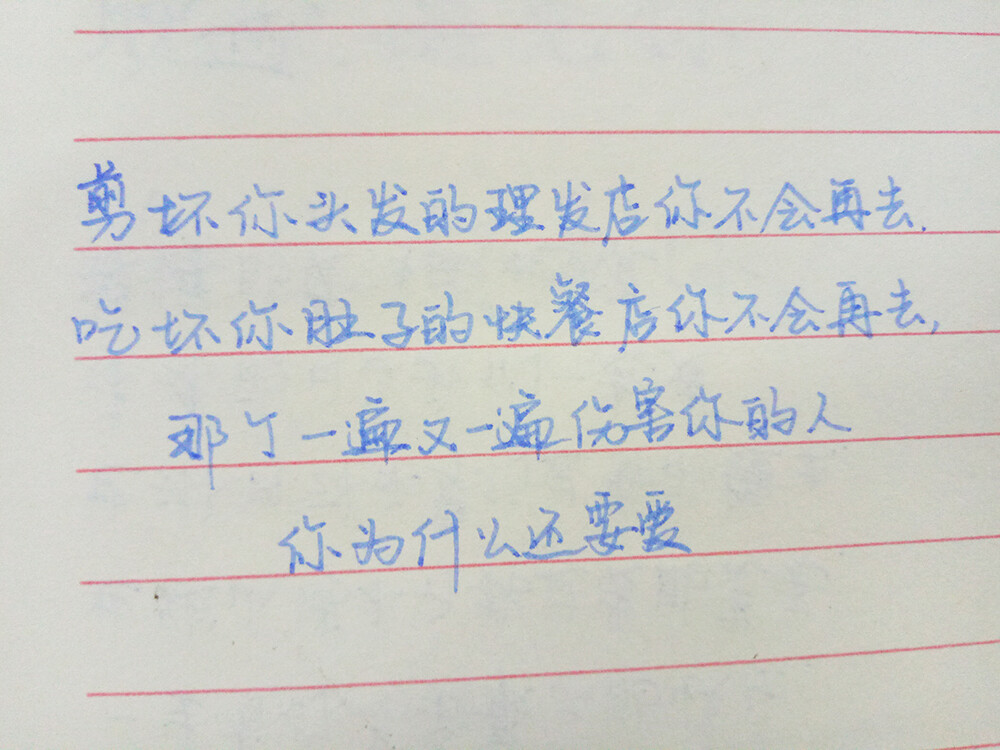 剪坏你头发的理发店你不会再去.
吃坏你肚子的快餐店你不会再去,
那个一遍又一遍伤害你的人
你为什么还要爱